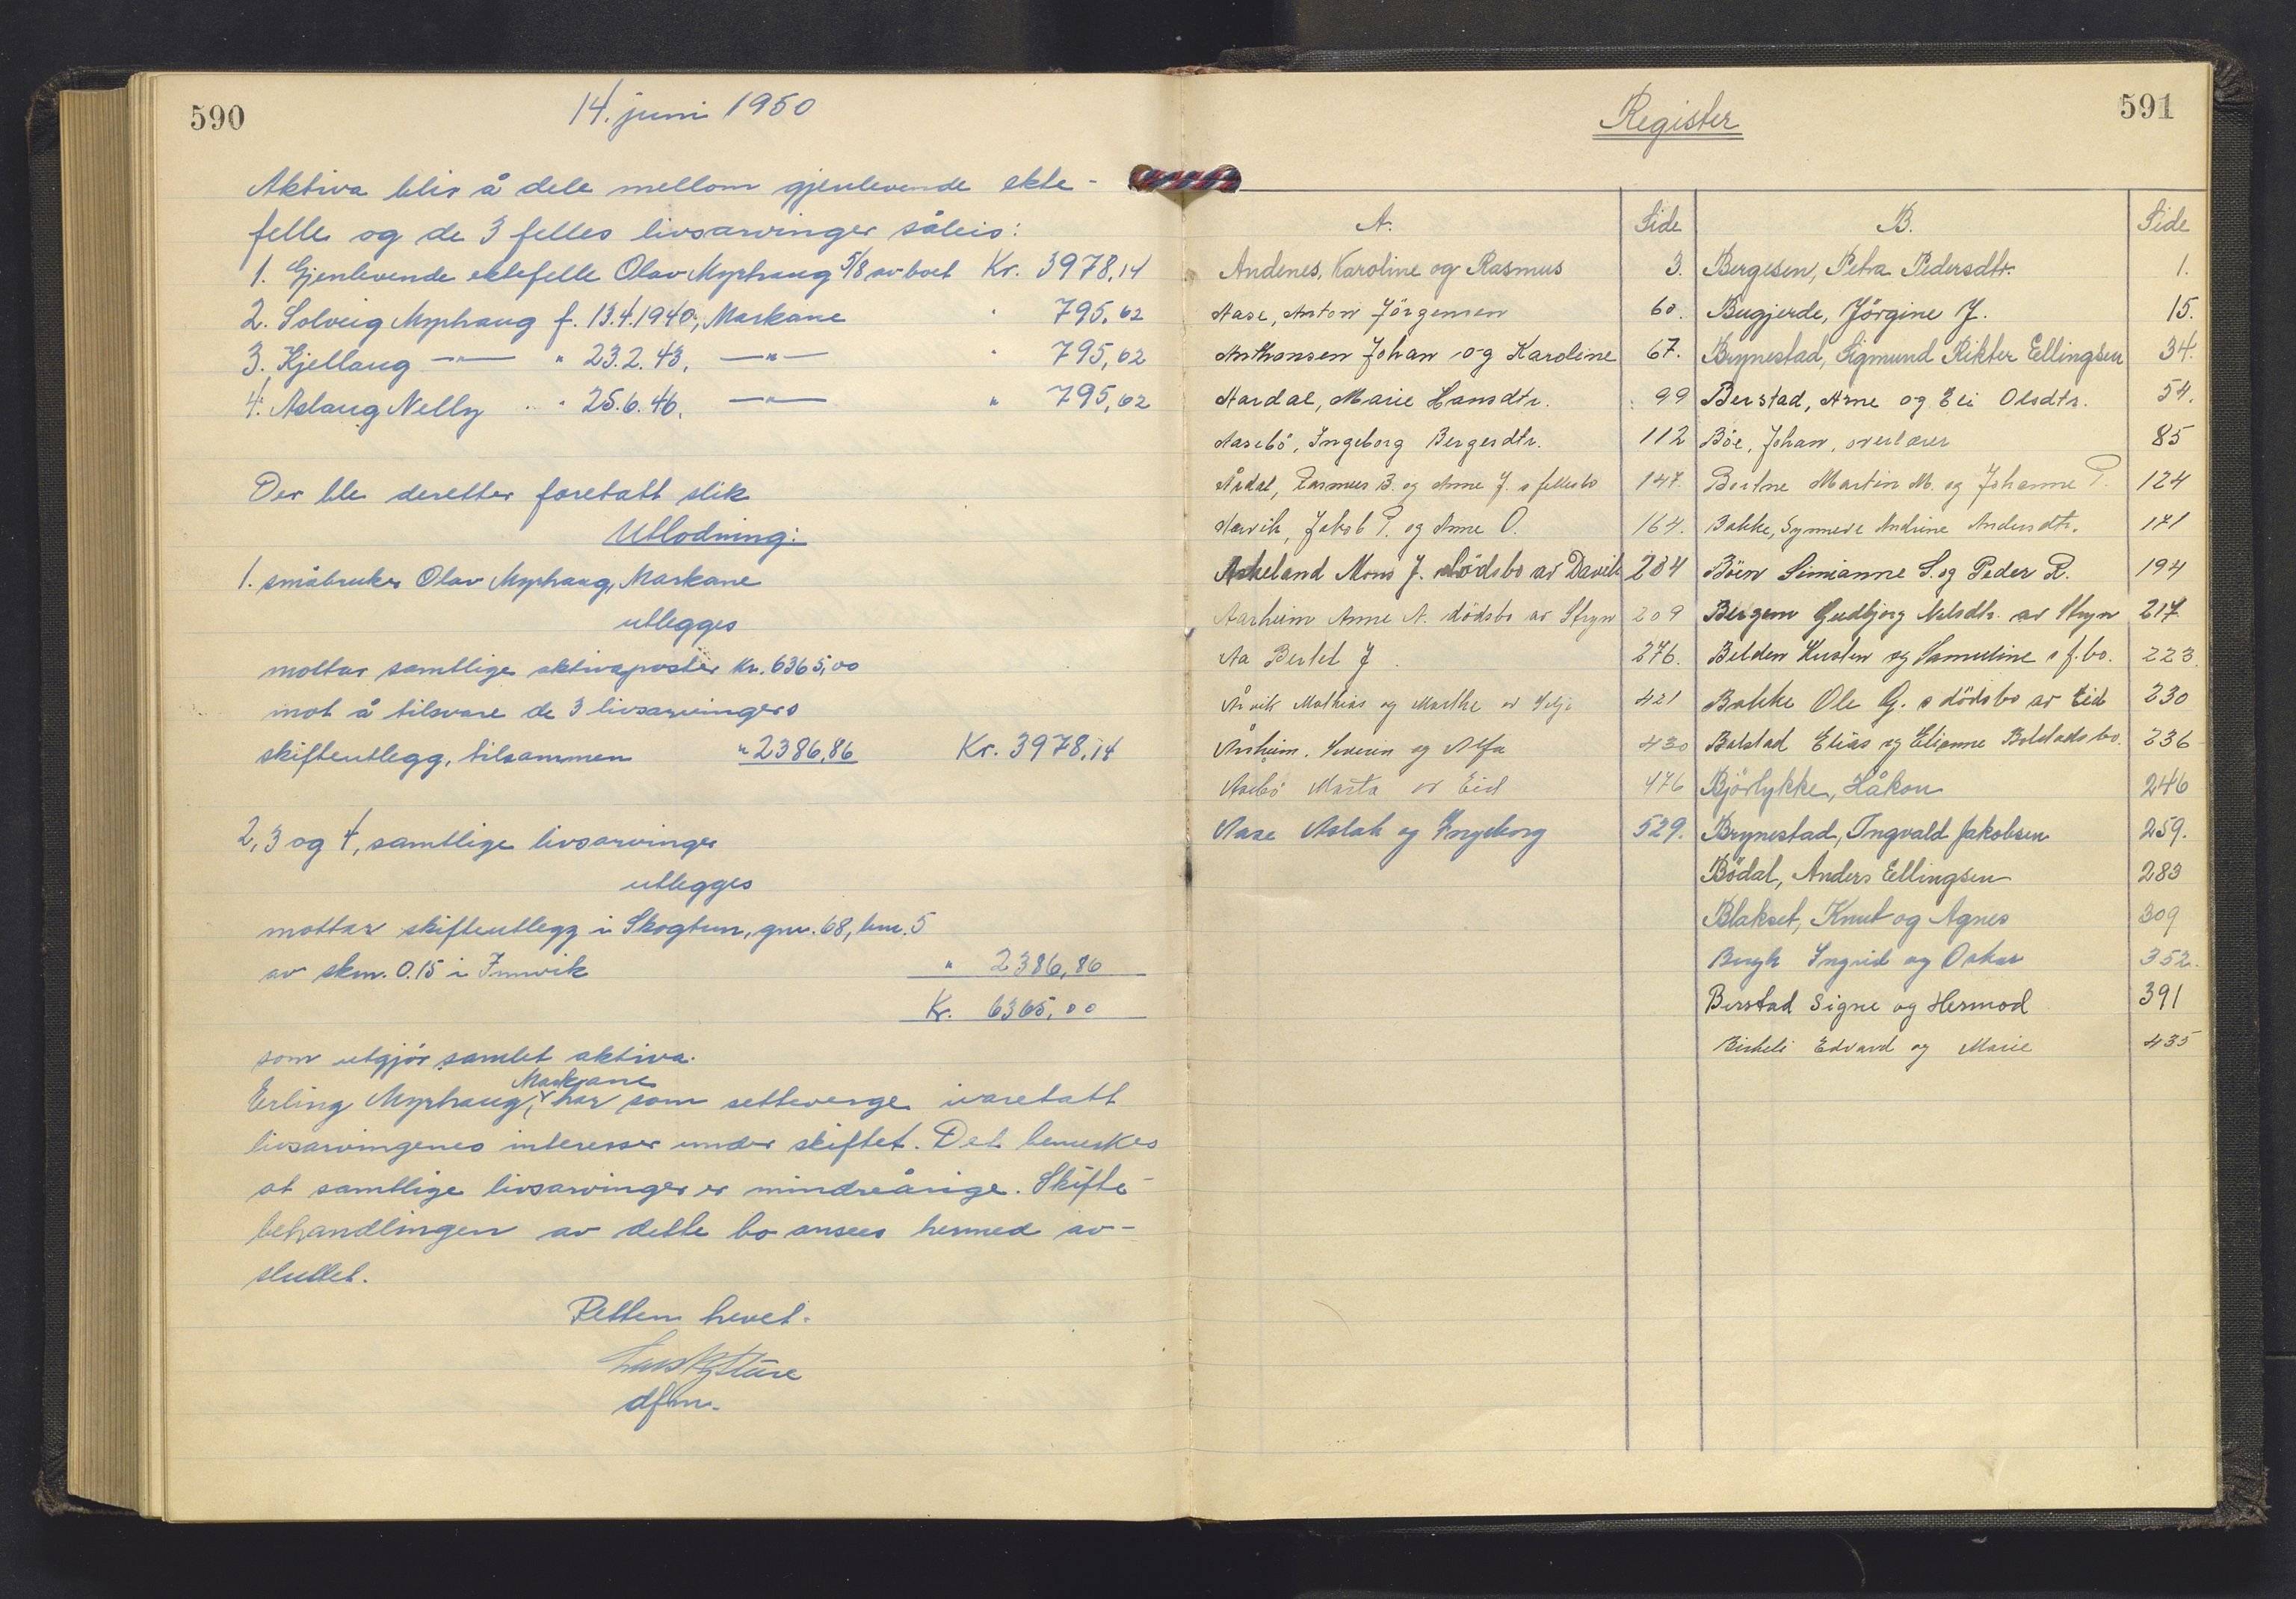 590
14. juni 1950
Aktiva blir å dele mellom gjenlevende ekte-
felle og de 3 felles livsarvinger såleis:
1. Gjenlevende ektefelle Olav Myrhaug 5/8 av boet Kr. 3978,14
2. Solveig Myrhaug f. 13.4.1940, Markane " 795,62
3. Kjellaug —"— " 23.2.43, —"— " 795,62
4. Aslaug Nelly " " 25.6.46, —"— " 795,62
Der ble deretter foretatt slik
Utlodning:
1. småbruker Olav Myrhaug, Markane
utlegges
mottar samtlige aktivaposter kr. 6365,00
mot å tilsvare de 3 livsarvingers
skifteutlegg, tilsammen " 2386,86 Kr. 3978,14
2, 3 og 4, samtlige livsarvinger
utlegges
mottar skifteutlegg i Skogtun, gnr. 68, bnr. 5
av skm. 0.15 i Innvik " 2386,86
Kr. 6365,00
som utgjør samlet aktiva.
Markane
Erling Myrhaug, har som setteverge ivaretatt
livsarvingenes interesser under skiftet. Det bemerkes
at samtlige livsarvinger er mindreårige. Skifte-
behandlingen av dette bo ansees hermed av-
sluttet.
Retten hevet.
dfm.
Register
591
A. Side B. Side
Andenes, Karoline og Rasmus 3. Bergesen, Petra Pedersdtr. 1.
Aase, Anton Jörgensen 60. Bugjerde, Jörgine J. 15.
Anthonsen Johan og Karoline 67. Brynestad, Sigmund Rikter Ellingsen 34.
Aardal, Marie Hansdtr. 99 Berstad, Arne og Eli Olsdtr. 54.
Aasebö, Ingeborg Bergesdtr. 112 Böe, Johan, overlærer 85
Årdal, Rasmus B. og Anne J. s fellesbo 147. Bortne Martin M. og Johanne P. 124
Aarvik, Jakob P. og Anne O. 164. Bakke, Synneve Andrine Andersdtr. 171
Askeland Mons J. dödsbo av Davik 204 Böen Simianne S. og Peder R. 194
Aarheim Anne A. dödsbo av Stryn 209 Bergem Gudbjørg Nelsdtr. av Stryn 217
Aa Bertel J. 276. Belden Kirsten og Samueline s f.bo. 223.
Årvik Mathias og Marthe av Selje 421 Bakke Ole G. s dödsbo av Eid 230
Årsheim, Severin og Alfa 430 Bolstad Elias og Elianne Bolstads bo. 236
Aasebö Marta av Eid 476 Bjørlykke, Håkon 246
Aase Aslak og Ingeborg 529. Brynestad, Ingvald Jakobsen 259.
Bödal, Anders Ellingsen 283
Blakset, Knut og Agnes 309
Bergh Ingrid og Oskar 352.
Berstad Signe og Hermod 391
Birkeli Edvard og Marie 435